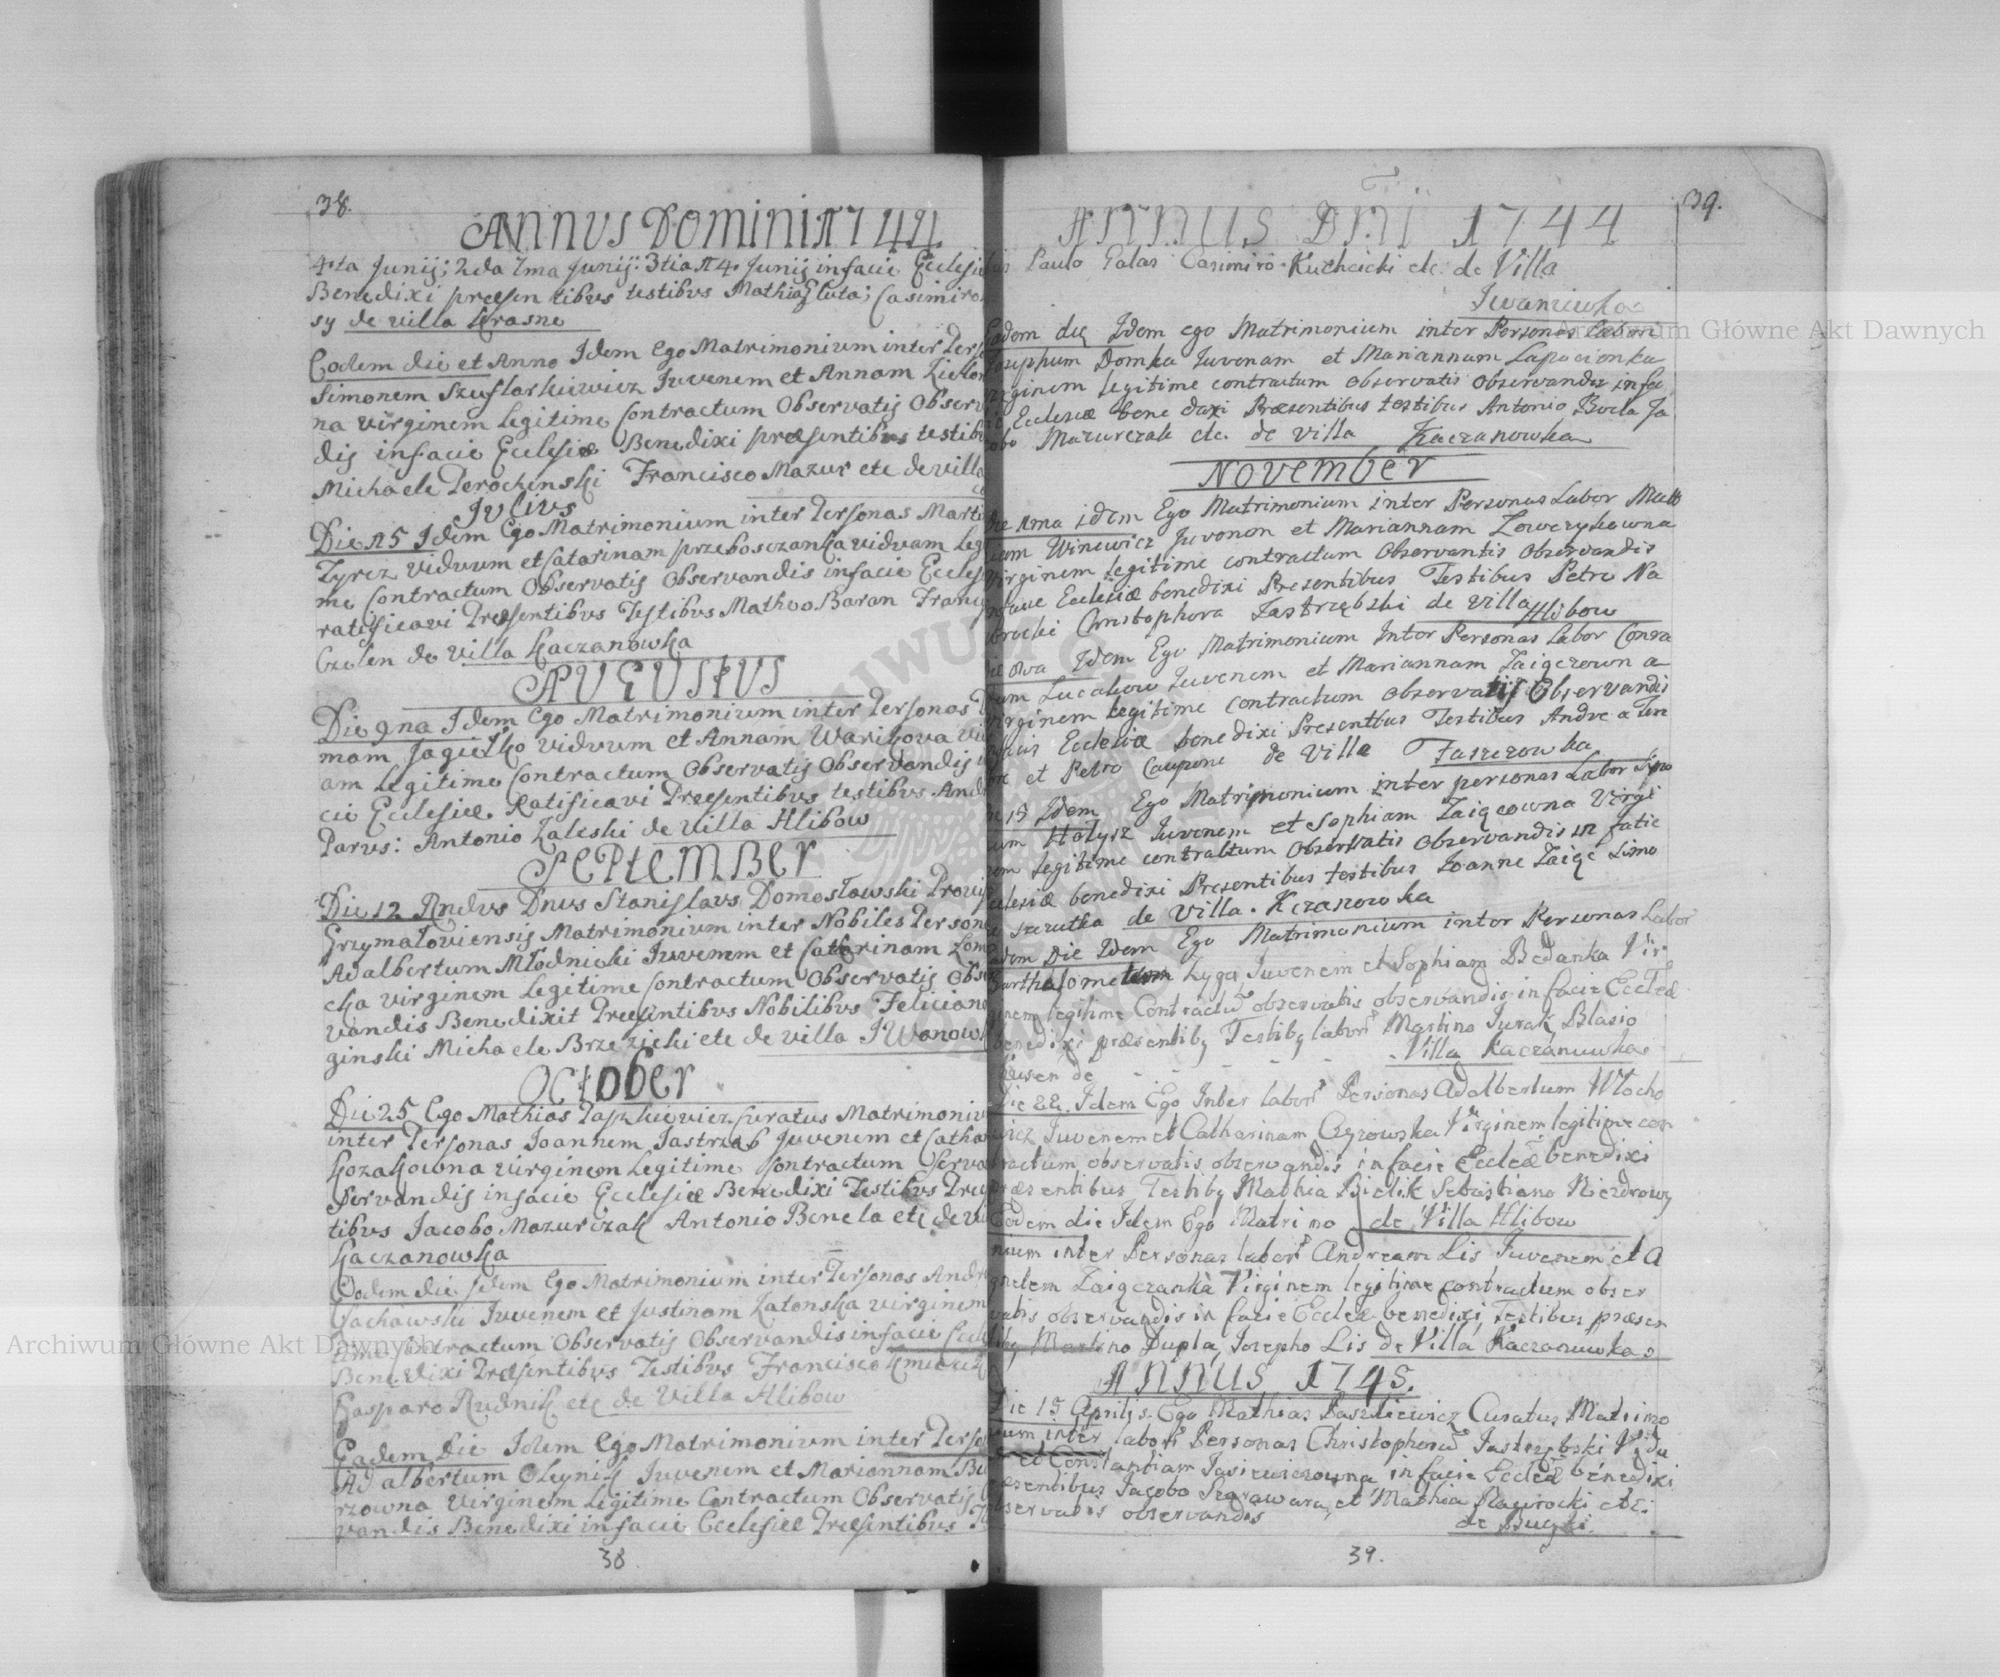 38.
ANNUS DOMINI 1744
4.ta Junij; 2da 7ma Junij: 3tia 14. Junij in facie Ecclesi
Benedixi præsentibus testibus Mathia Casimiro
sy de villa Krasne
Eodem die et Anno Idem Ego Matrimonium inter Perso
Simonem Szustarkiewicz Iuvenem et Annam
na virginem Legitime Contractum Observatis Observ
dis in facie Ecclesiæ Benedixi præsentibus testibu
Michaele Francisco Mazur etc de villa
Julius
Die 15 Idem Ego Matrimonium inter Personas Marti
Zyrcz viduum et Catarinam viduam Leg
me Contractum Observatis Observandis in facie Ecclesi
ratificavi Præsentibus Testibus Matheo Baran Franci
de villa Kaczanowka
AUGUSTUS
Die 9na Idem Ego Matrimonium inter Personas
mam Jagiełło viduum et Annam vi
am Legitime Contractum Observatis Observandis in
cie Ecclesiæ. Ratificavi Præsentibus testibus And
Parus: Antonio Zaleski de Villa Hlibow
SEPTEMBER
Die 12 Rndus Dnus Stanislaus Domosławski
Grzymałoviensis Matrimonium inter Nobiles Person
Adalbertum Młodnicki Iuvenem et Catharinam
cka virginem Legitime Contractum Observatis Obse
vandis Benedixit Præsentibus Nobilibus Feliciano
ginski Michaele Brzezicki etc de villa IWanow
OCTOBER
Die 25 Ego Mathias Paszkiewicz Curatus Matrimoniu
inter Personas Joannem Jastrząb Iuvenem et Catha
Kozakowna virginem Legitime Contractum
servandis in facie Ecclesiæ Benedixi Testibus Præ
tibus Jacobo Mazurczak Antonio Benela etc de vi
Kaczanowka
Eodem die Idem Ego Matrimonium inter Personas Andr
Iuvenem et Justinam Zatonska virginem
time Contractum Observatis Observandis in facie Eccle
Benedixi Præsentibus Testibus Francisco
Gasparo Rudnik etc de Villa Hlibow
Eadem Die Idem Ego Matrimonium inter Perso
Adalbertum Oleynik Iuvenem et Mariannam Bu
rzowna virginem Legitime Contractum Observatis
vandis Benedixi in facie Ecclesiæ Præsentibus
38
39.
ANNUS DNI 1744
Paulo Galas Casimiro Kucheicki etc. de Villa
Iwaniuwka
Eadem die Idem ego Matrimonium inter Personas Labori
Josephum Domka Iuvenam et Mariannam Lapacionka
virginem legitime contractum observatis observandis in fa
Ecclesiæ bene dixi Præsentibus testibus Antonio Ja
obo Mazurczak etc. de Villa Kaczanowka
NOVEMBER
Die 1ma idem Ego Matrimonium inter Personas Labor Math
Winewicz Juvonon et Mariannam Zowczykowna
Virginem legitime contractum Observantis observandis
Ecclesiæ benedixi Presentibus Testibus Petro Na
brocki Christophora Jastrzębski de villa Hlibow
Idem Ego Matrimonium Inter Personas Labor Conra
dum Lucakow Iuvenem et Mariannam Zaigczown a
Virginem legitime contractum observatis Observandis
Ecclesiæ benedixi Presentbus Testibus Andre a
et Petro Caupone de Villa Faszczowka
15 Idem Ego Matrimonium inter personas Labor Simo
Hołysz Iuvenem et Sophiam Zaigcowna Virgi
nem legitime contractum observatis observandis in fatie
Ecclesiæ benedixi Presentibus testibus Ioanne Zaigc Simo
Szczutka de Villa. Kczanowka
Eadem Die Idem Ego Matrimonium inter Personas Labor
Bartholomeum Zyga Iuvenem et Sophiam Vir
ginem legitime Contractũ observatis observandis in facie Eccleæ
benedixi præsentibq Testibq labor Martino Jurak Blasio
Kusen de - - - Villa Kaczanuwka
Die 22. Idem Ego Inter labor Personas Adalbertum Włocho
wicz Iuvenem et Catharinam Virginem legitime con
tractum observatis observandis in facie Eccleæ benedixi
præsentibus Testibq Mathia Bielik Sebastiano
Eodem die Idem Ego Matrimo de Villa Hlibow
nium inter Personas labor Andream Lis Iuvenem et A
gnetem Zaigczanka Virginem legitime contractum obser
vatis observandis in facie Eccleæ benedixi Testibus præsen
tibq Martino Dupla, Josepho Lis de Villa Kaczanuwka
ANNUS 1745.
Die 15 Aprilis. Ego Mathias Paszkiewicz Curatus Matrimo
nium inter labor Personas Christophorũ Jastrzębski Vidu
et Constantiam Jasiewiczowna in facie Eccleæ benedixi
præsentibus Jacobo Szarawara, et Mathia Nawrocki etc:
observatis observandis de Bucyki.
39.
Archiwum Główne Akt Dawnych
Archiwum Główne Akt Dawnych